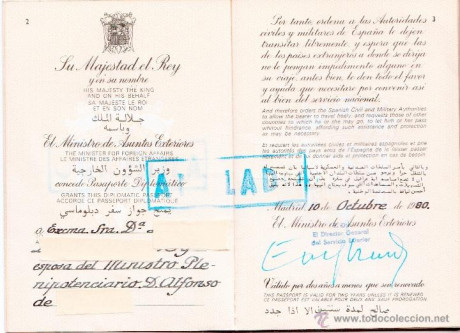 2
Su Majestad el Rey
y en su nombre
HIS MAJESTY THE KING
AND ON HIS BEHALF
SA MAJESTÉ LE ROI
ET EN SON NOM
جلالة الملك
وباسمه
El Ministro de Asuntos Exteriores
THE MINISTER FOR FOREIGN AFFAIRS
LE MINISTRE DES AFFAIRES ETRANGERES
وزير الشؤون الخارجية
concede Pasaporte Diplomático
GRANTS THIS DIPLOMATIC PASSPORT
ACCORDE CE PASSEPORT DIPLOMATIQUE
يمنح جواز سفر دبلوماسي
a Excma. Sra. Dª
esposa del Ministro Ple-
nipotenciario D. Alfonso
de
3
Por tanto, ordena a las Autoridades
civiles y militares de España le dejen
transitar libremente, y espera que las
de los países extranjeros a donde se dirija
no le pongan impedimento alguno en
su viaje, antes bien, le den todo el favor
y ayuda que necesitare por convenir así
al bien del servicio nacional.
And therefore orders the Spanish Civil and Military Authorities
to allow the bearer to travel freely, and requests those of other
countries to which he is or may go, to let him or her pass
without hindrance, affording such assistance and protection
as may be necessary.
Madrid 10 de Octubre de 1980.
El Ministro de Asuntos Exteriores
El Director General
del Servicio Exterior
Válido por dos años a menos que sea renovado
THIS PASSPORT IS VALID FOR TWO YEARS UNLESS IT IS RENEWED
CE PASSEPORT EST VALABLE POUR DEUX ANS SAUF PROROGATION
صالح لمدة سنتين إلا إذا جدد
todocoleccion.net
www.todocoleccion.net